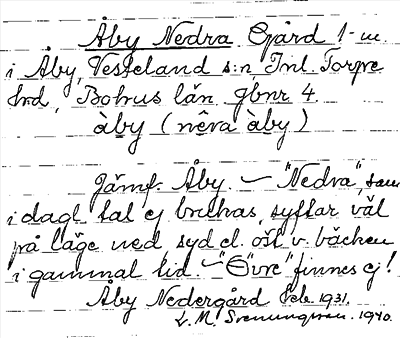 Åby Nedra Gård 1 m
i Åby, Vesteland s:n, Inl. Torpe
hrd, Bohus län gbnr 4.
àby (nêvra àby)
Jämf. Åby. — "Nedra", som
i dagl. tal ej brukas, syftar väl
på läge ned syd el. öst v. bäcken
i gammal tid. — "Övre" finnes ej!
Åby Nedergård Feb. 1931.
L. M. Svenungsson. 1940.